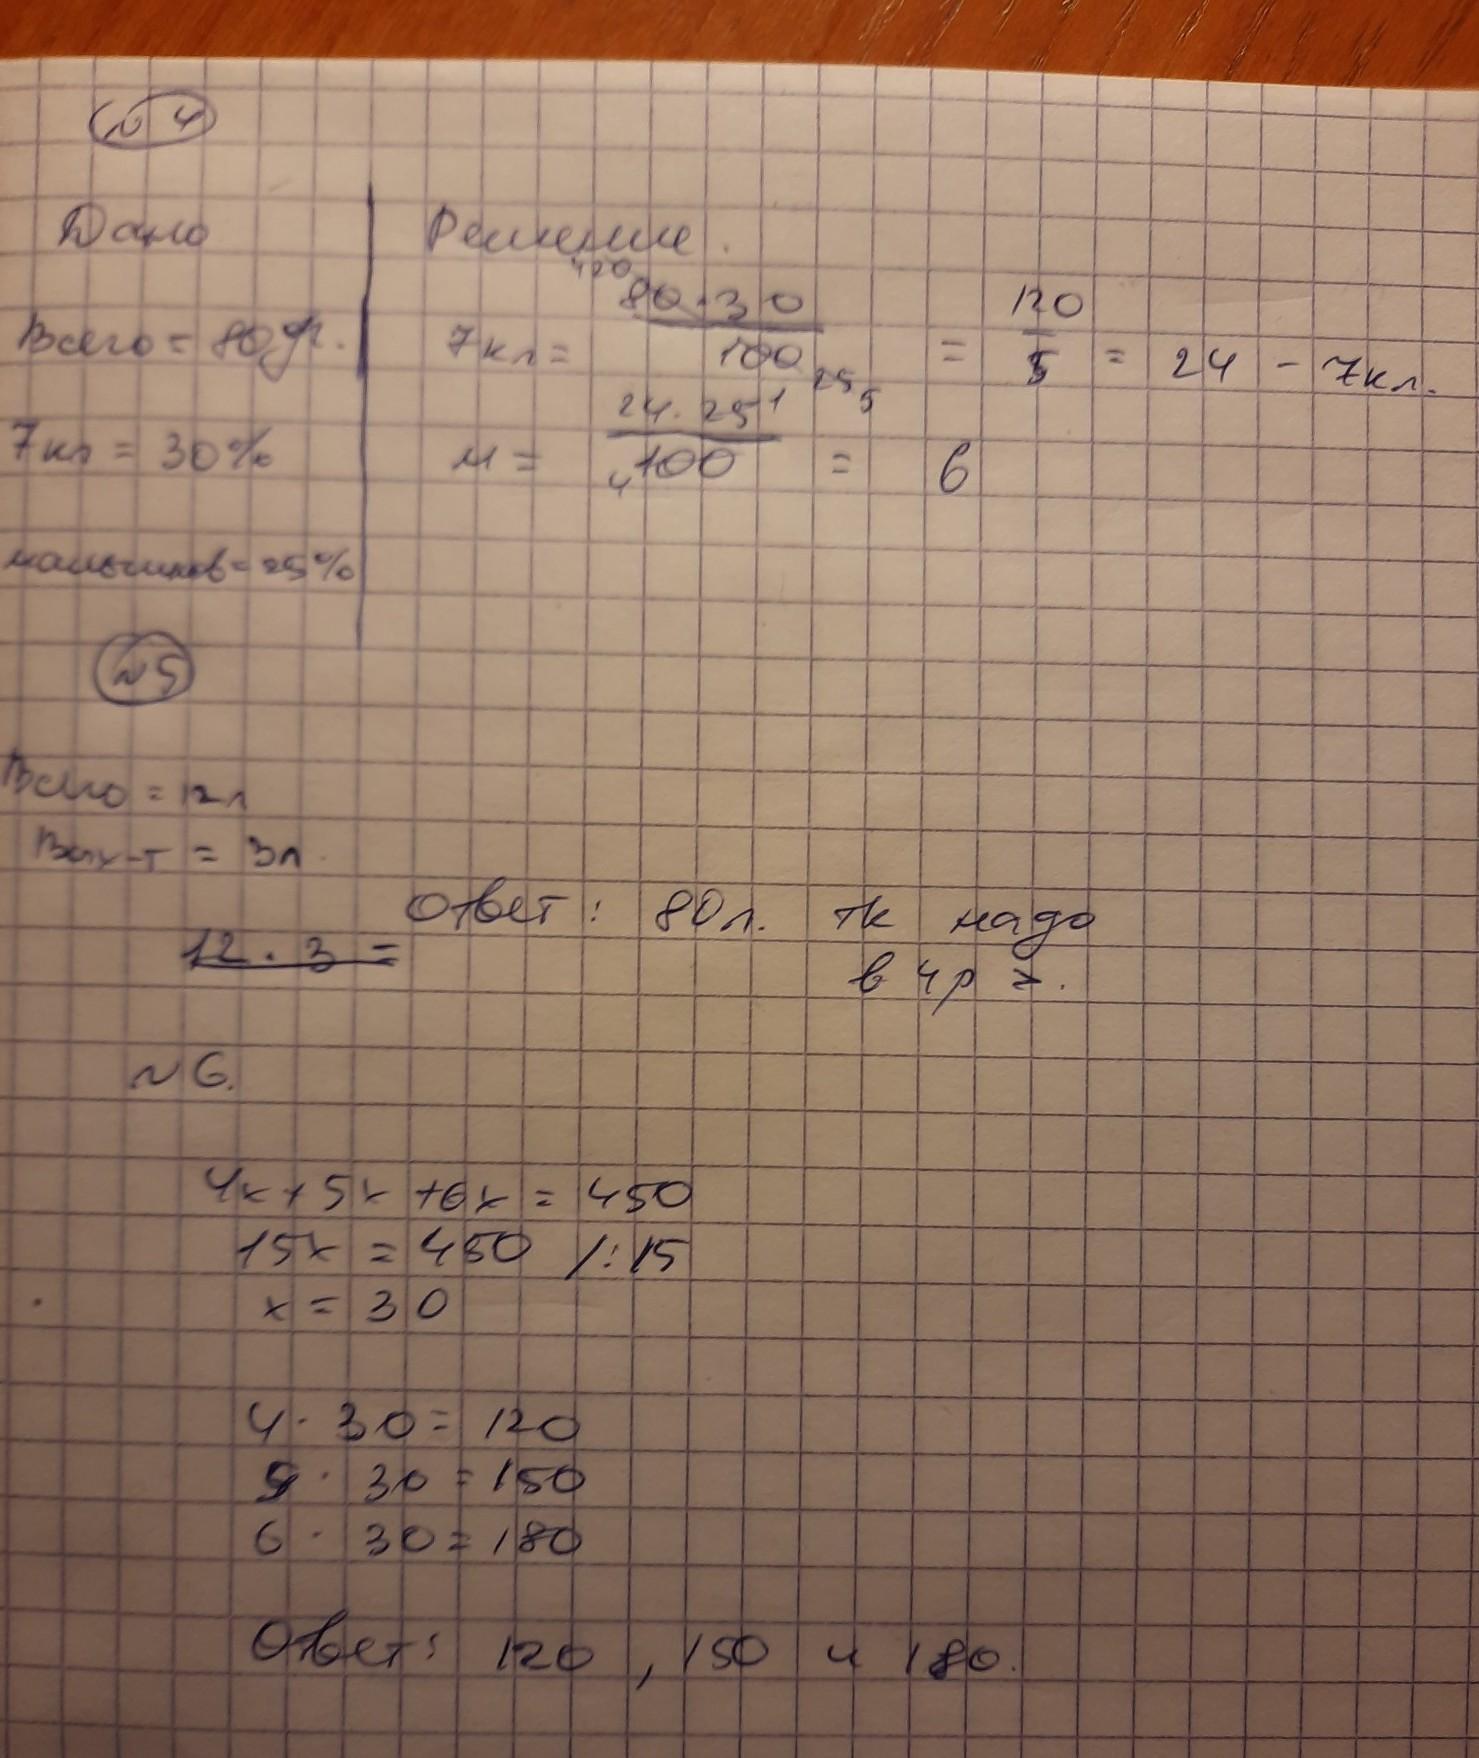 № 4
Дано
Решение.
Всего = 80 уч.
7кл = 80·30 / 100 = 120 / 5 = 24 - 7кл.
7кл = 30%
м = 24·25 1 / 4 100 = 6
мальчиков = 25%
№5
Всего = 12л
Вых-т = 3л.
12 · 3 =
Ответ: 80л. тк надо
в 4р >.
№ 6.
4x + 5x + 6x = 450
15x = 450 /:15
x = 30
4 · 30 = 120
5 · 30 = 150
6 · 30 = 180
Ответ: 120, 150 и 180.